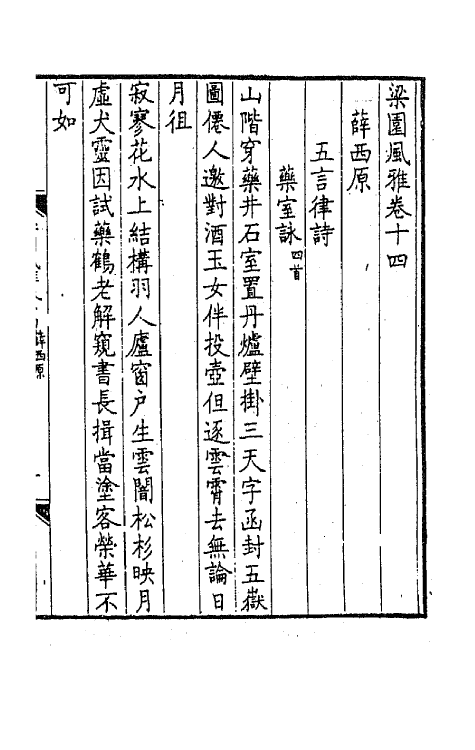 梁園風雅卷十四
薛西原
五言律詩
藥室詠四首
山階穿藥井石室置丹爐壁掛三天字函封五嶽
圖僊人邀對酒玉女伴投壺但逐雲霄去無論日
月徂
寂寥花水上結構羽人廬窗户生雲闇松杉映月
虛犬靈因試藥鶴老解窺書長揖當塗客榮華不
可如
薛西原